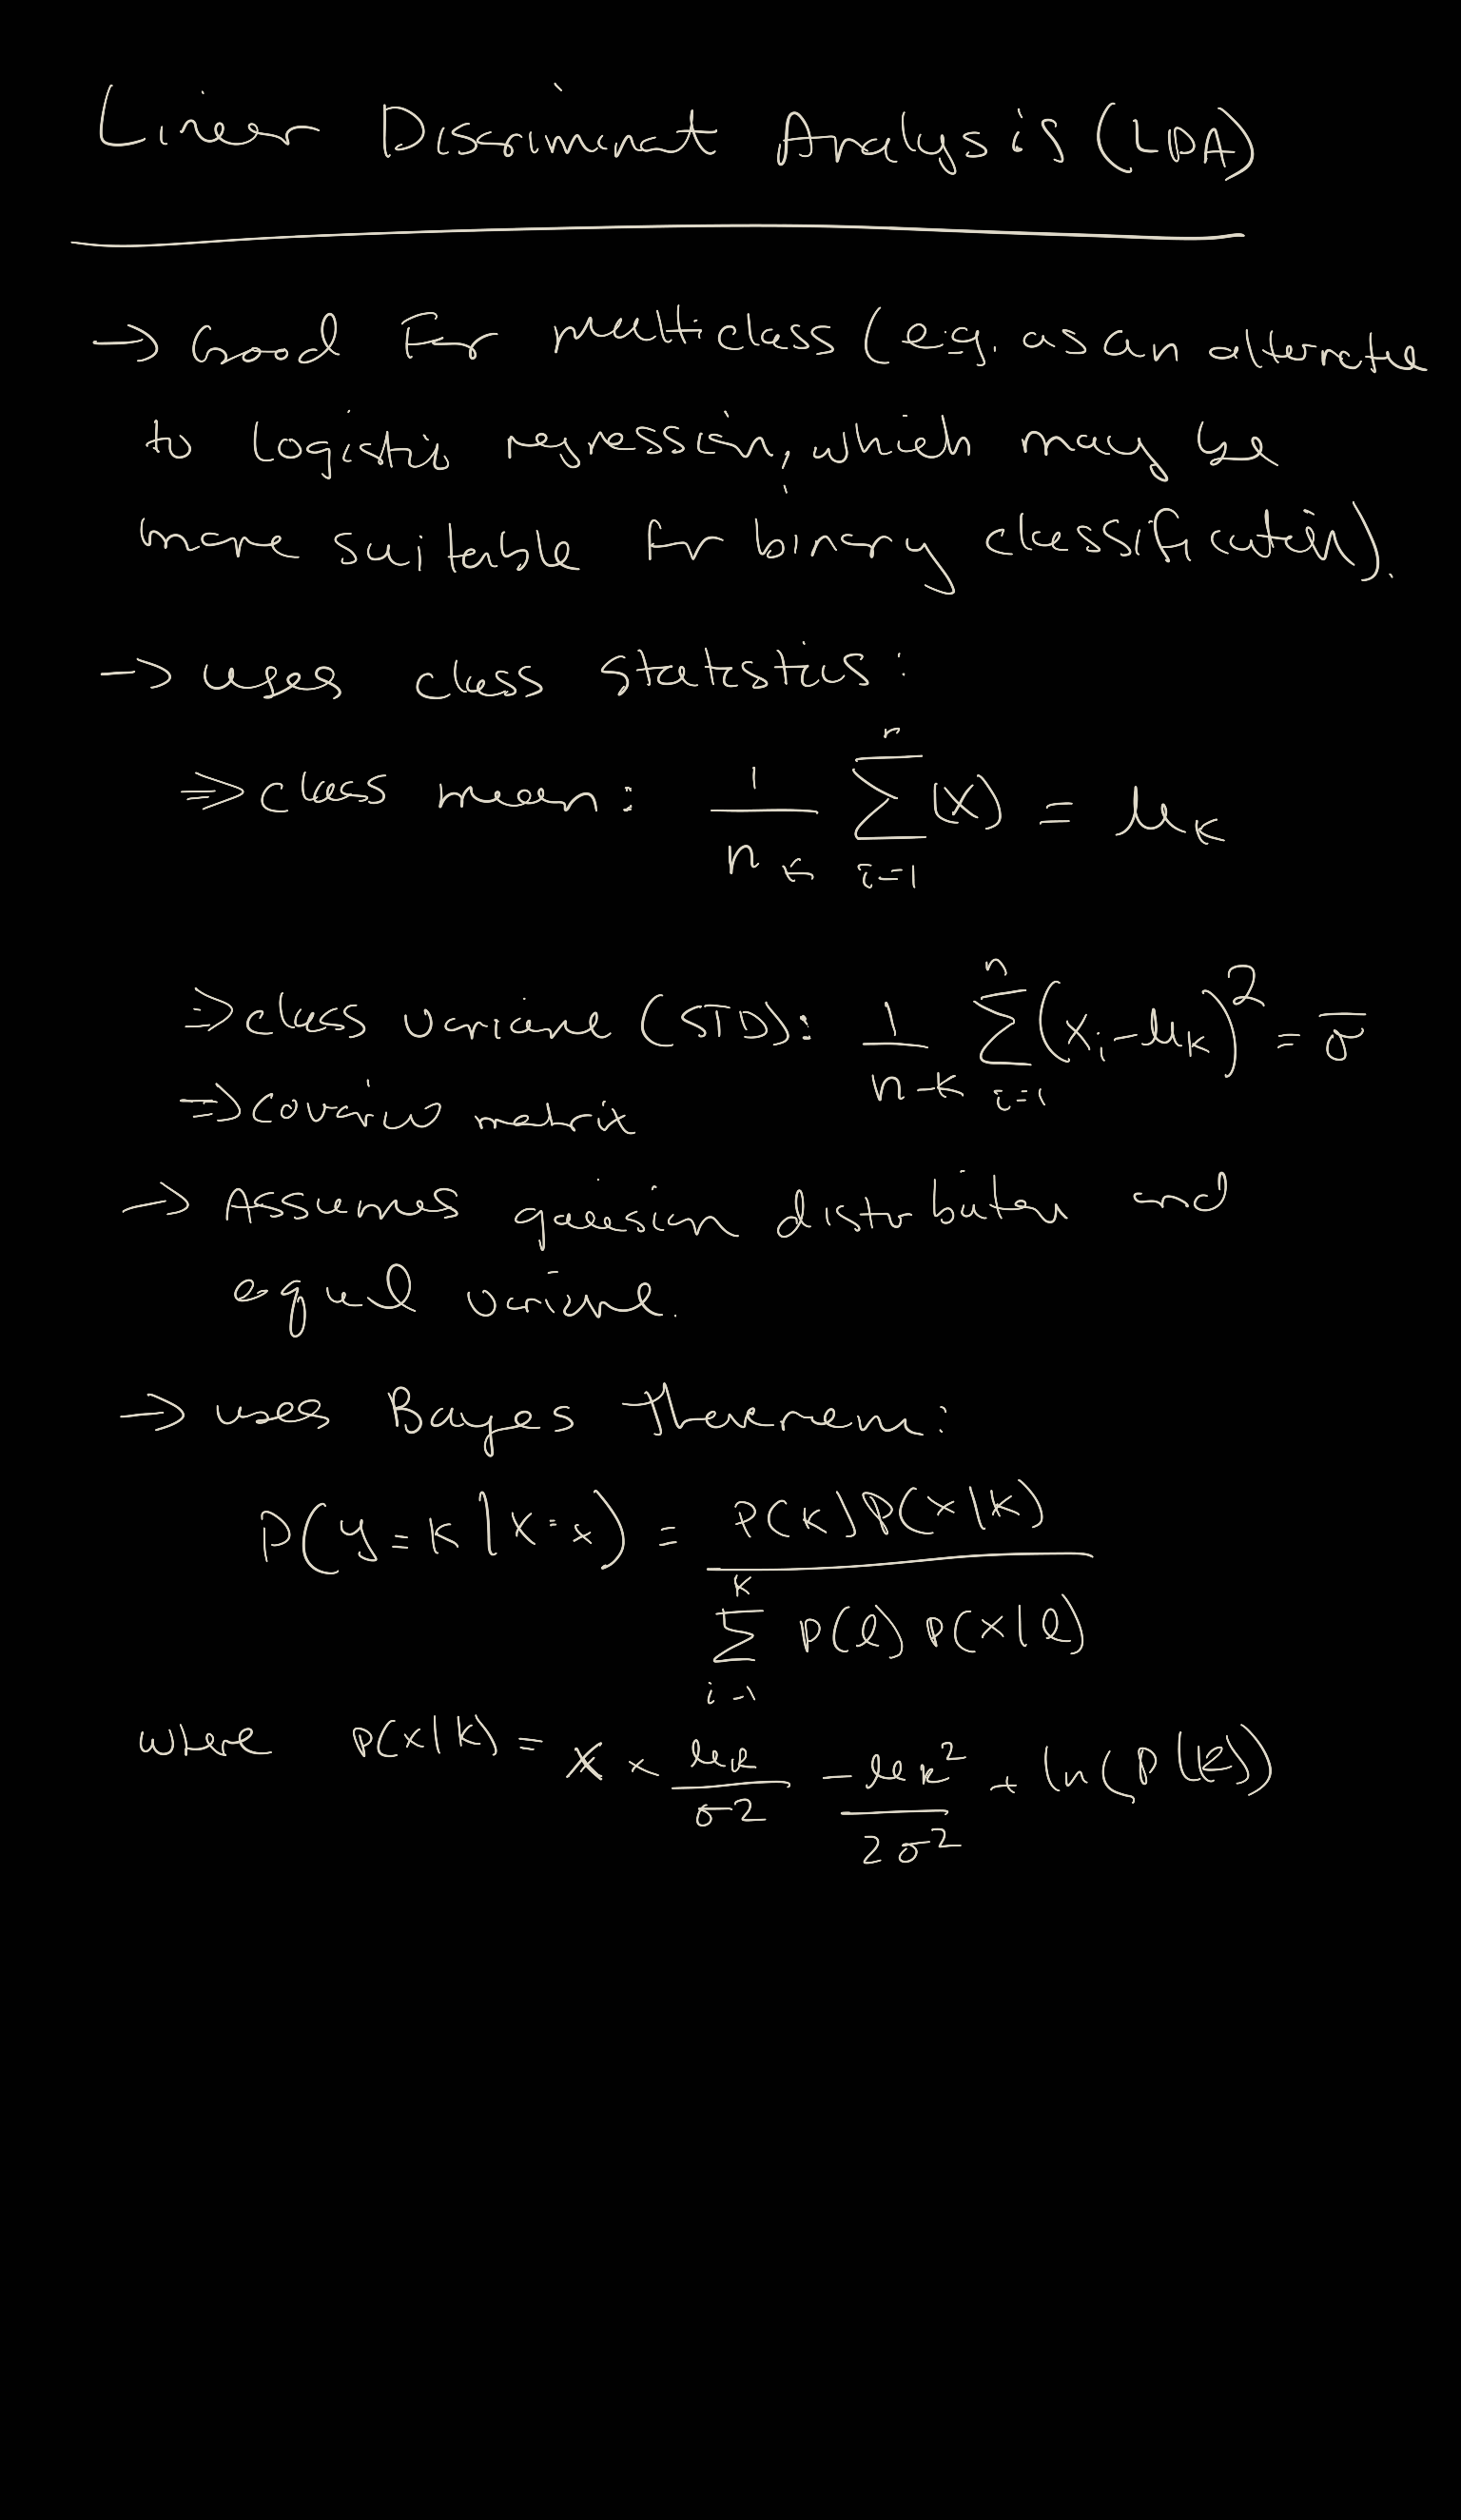 Linear Discriminant Analysis (LDA)
→ Good For multiclass (e.g. as an alternative
to logistic regression, which may be
more suitable for binary classification).
→ uses class statistics:
⇒ class mean: 1/n_k Σ_{i=1}^{n} (x) = μ_k
⇒ class variance (STD): 1/(n-k) Σ_{i=1}^{n} (x_i - μ_k)^2 = σ
⇒ covariance matrix
→ Assumes gaussian distribution and
equal variance.
→ uses Bayes theorem:
P(y=k|X=x) = P(k) P(x|k) / Σ_{i=1}^{k} P(l) P(x|l)
where P(x|k) = x × μ_k/σ^2 - μ_k^2/2σ^2 + ln(P(k))